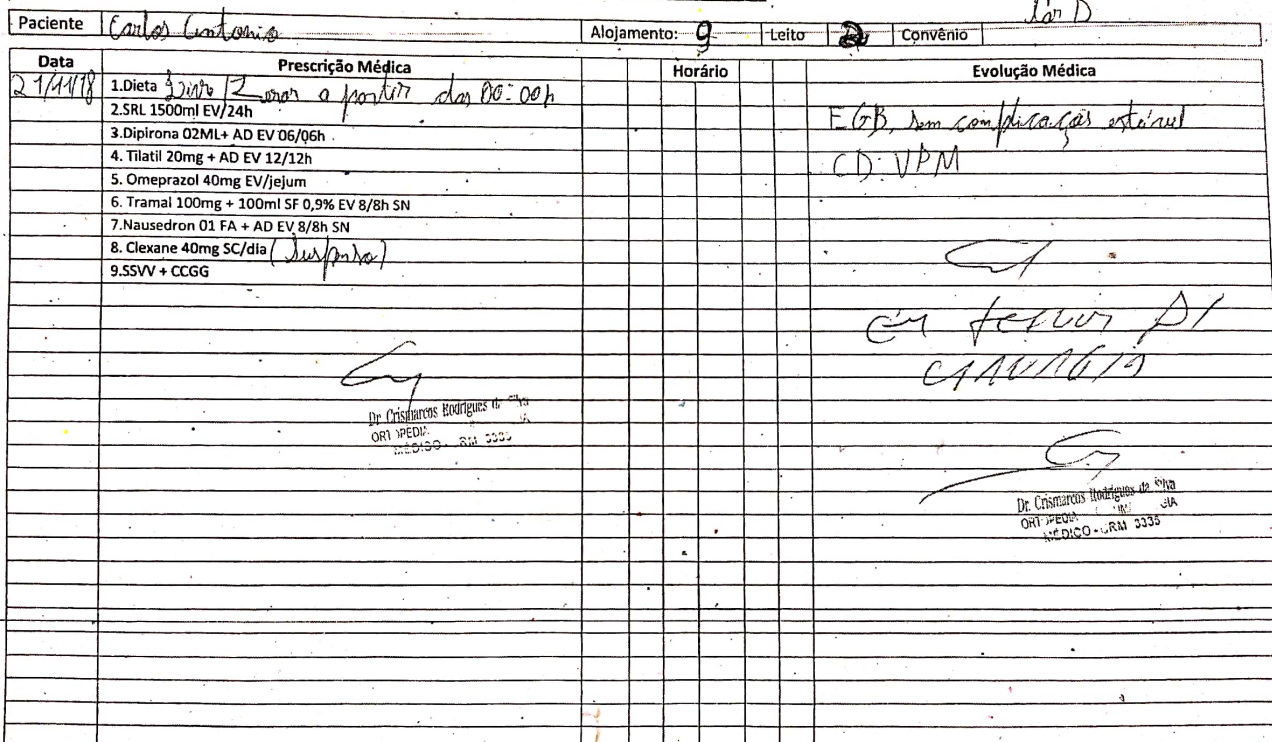 Paciente Carlos Antonio Alojamento: 9 Leito Convênio
Data Prescrição Médica Horário Evolução Médica
21/11/18 1.Dieta Livre / Zerar a partir das 00:00h
2.SRL 1500ml EV/24h
3.Dipirona 02ML+ AD EV 06/06h
4. Tilatil 20mg + AD EV 12/12h
5. Omeprazol 40mg EV/jejum
6. Tramal 100mg + 100ml SF 0,9% EV 8/8h SN
7.Nausedron 01 FA + AD EV 8/8h SN
8. Clexane 40mg SC/dia (Suspenso)
9.SSVV + CCGG
EGB, sem complicações estável
CD: VPM
cirurgia
Dr. Crismarcos Rodrigues da Silva
MÉDICO - CRM 3335
Dr. Crismarcos Rodrigues da Silva
MÉDICO - CRM 3335